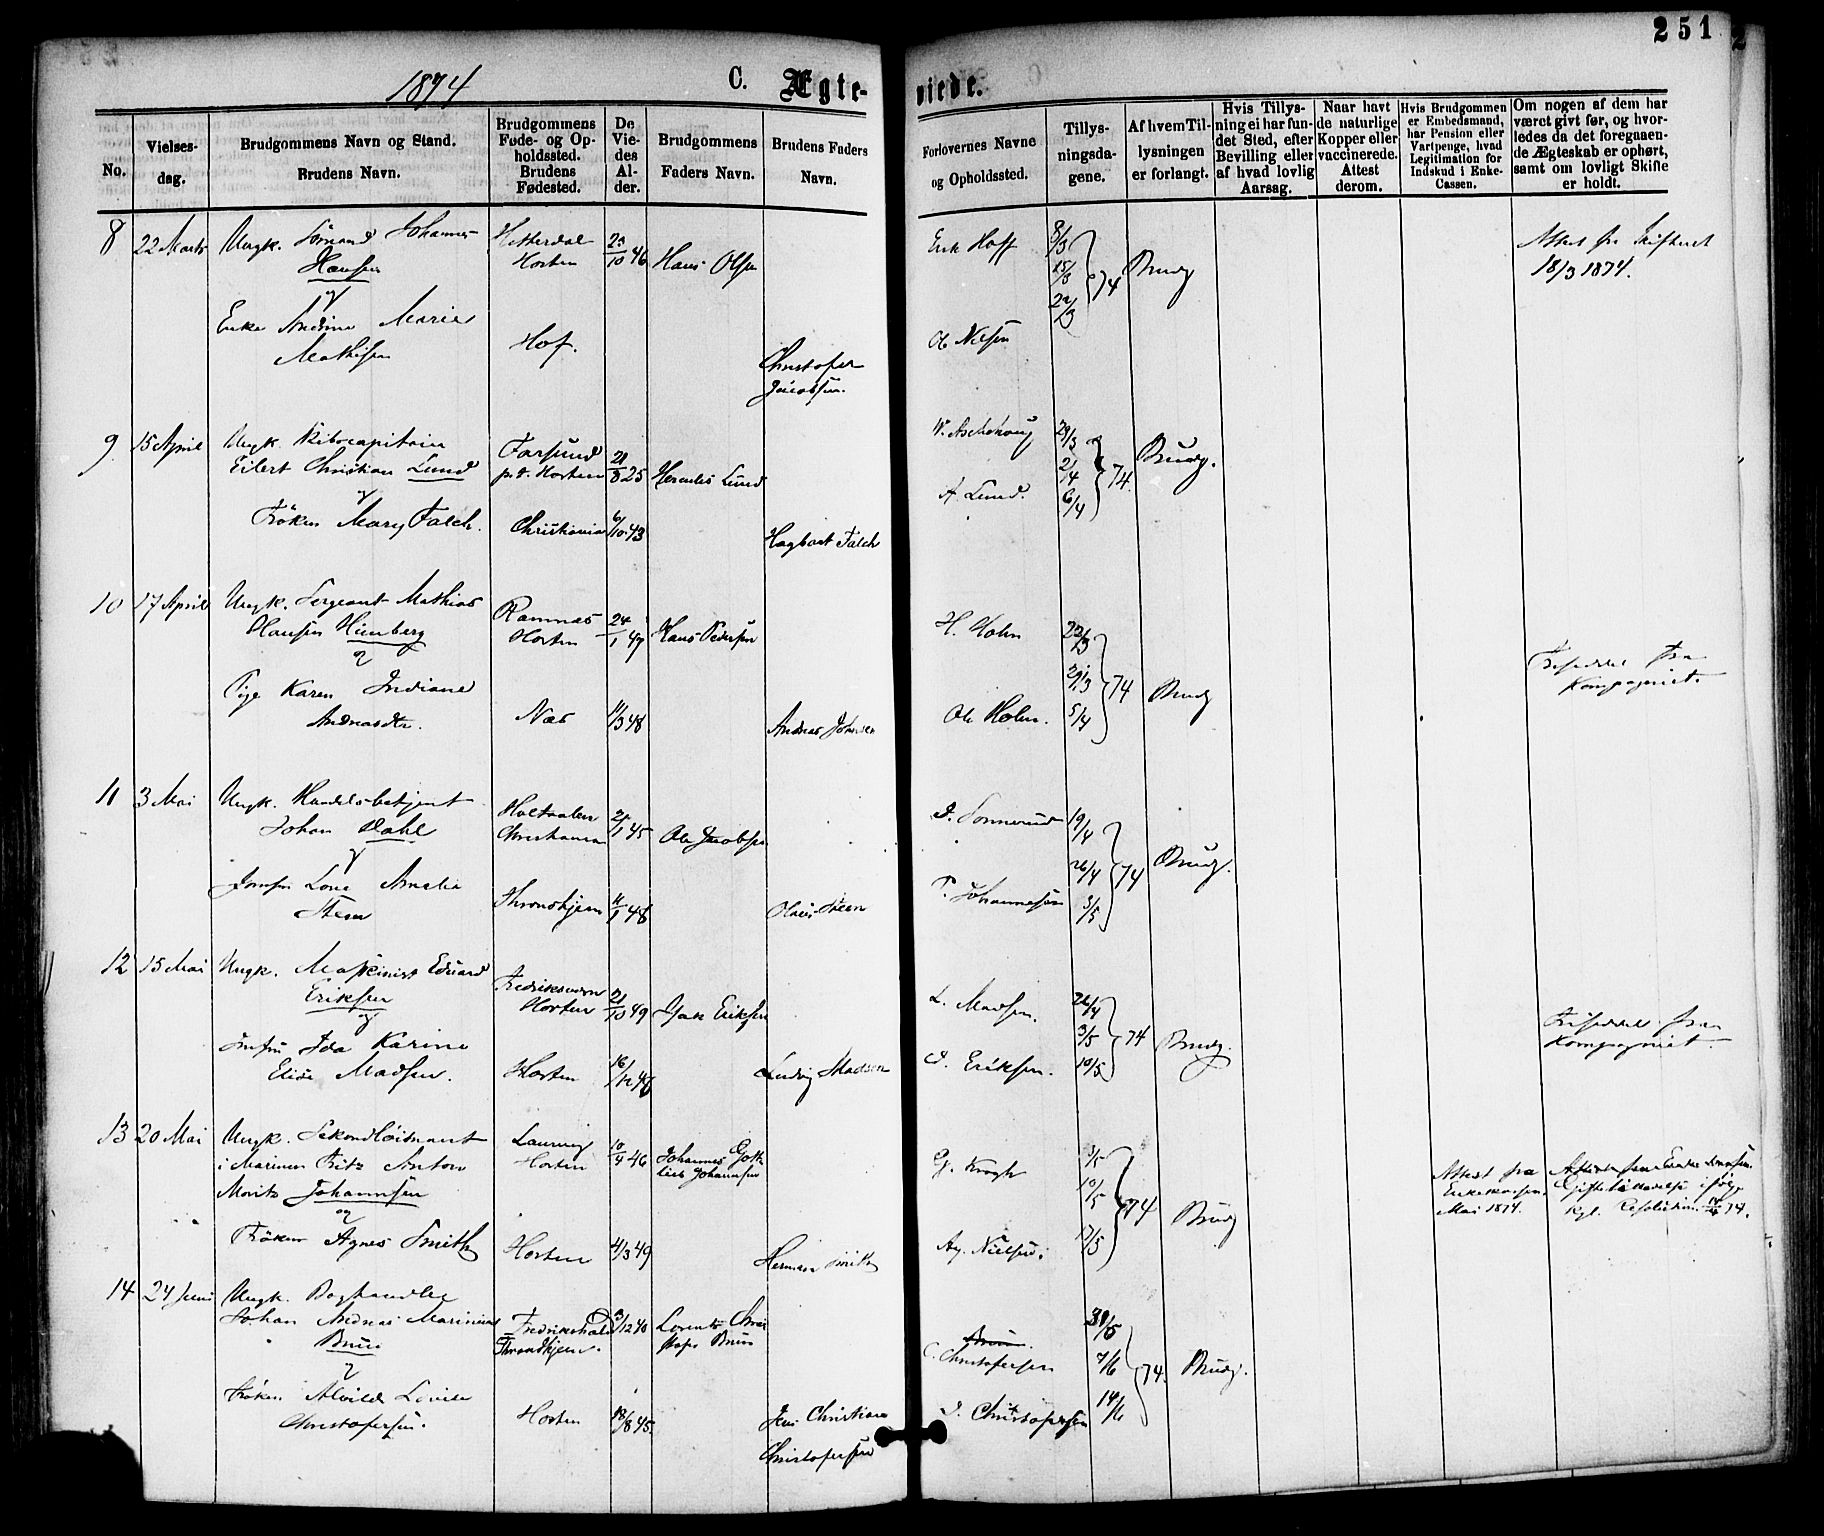 1874
C. Ægte-
viede.
251
No.
Vielses-
dag.
Brudgommens Navn og Stand.
Brudens Navn.
Brudgommens
Føde- og Op-
holdssted.
Brudens
Fødested.
De
Vie-
des
Al-
der.
Brudgommens
Faders Navn.
Brudens Faders
Navn.
Forlovernes Navne
og Opholdssted.
Tillys-
ningsda-
gene.
Af hvem Til-
lysningen
er forlangt.
Hvis Tillys-
ning ei har fun-
det Sted, efter
Bevilling eller
af hvad lovlig
Aarsag.
Naar havt
de naturlige
Kopper eller
vaccinerede.
Attest
derom.
Hvis Brudgommen
er Embedsmand,
har Pension eller
Vartpenge, hvad
Legitimation for
Indskud i Enke-
Cassen.
Om nogen af dem har
været givt før, og hvor-
ledes da det foregaaen-
de Ægteskab er ophørt,
samt om lovligt Skifte
er holdt.
8
22 Marts
Ungk. Sømand Johannes
Hansen
og
Enke Andrine Marie
Mathisen
Hitterdal
Horten
Hof.
25/10 46
Hans Olsen
Christofer
Jacobsen.
Erik Hoff
Ole Nilsen
8/3
15/3
22/3
74
Brudg
Attest fra Skifteret
18/3 1874.
9
15 April
Ungk. Skibscapitain
Eilert Christian Lund
og
Frøken Mary Falch.
Farsund
p.t. Horten
Christiania
21/8 25
6/10 43
Herculis Lund
Hagbart Falch
W. Aschehoug
A. Lund.
29/3
2/4
6/4
74.
Brudg.
10
17 April
Ungk. Sergeant Mathias
Hansen Himberg
og
Pige Karen Indiane
Andreasdtr.
Ramnæs
Horten
Næs
24/1 47
11/3 48
Hans Pedersen
Andreas Johnsen
H. Holm
Ole Holm.
22/3
29/3
5/4
74
Brudg
Friseddel fra
Kompagniet.
11
3 Mai
Ungk. Handelsbetjent
Johan Dahl
og
Jomfru Lova Amalia
Steen
Holtaalen
Christiania
Throndhjem
21/1 45
11/1 48
Ole Jacobsen
Olaus Steen
J. Sonnerud
P. Johannesen
19/4
26/4
3/5
74
Brudg.
12
15 Mai
Ungk. Maskinist Edvard
Eriksen
og
Jomfru Ida Karine
Elise Madsen.
Fredriksværn
Horten
Horten
21/10 49
16/12 47
Isak Eriksen
Ludvig Madsen
L. Madsen.
I. Eriksen.
26/4
3/5
10/5
74
Brudg.
Friseddel fra
Kompagniet.
13
20 Mai
Ungk. Sekondløitnant
i Marinen Fritz Anton
Moritz Johannsen
og
Frøken Agnes Smith
Laurvig
Horten
Horten
10/4 46
4/3 49
Johannes Gott
lieb Johannsen
Herman Smith
G. Krogh
Ag. Nielsen.
3/5
10/5
17/5
74
Brudg
Attest fra
Enkekassen
Mai 1874.
Giftetilladelse ifølge
Kgl. Resolution 74.
14
24 Juni
Ungk. Boghandler
Johan Andreas Marinius
Bruu
og
Frøken Alvilde Lovise
Christofersen.
Fredrikshald
Throndhjem.
Horten
3/12 40
18/8 45.
Lorents Chri
stofer Bruu
Jens Christian
Christofersen
Bruun.
C. Christofersen
J. Christofersen
31/5
7/6
14/6
74.
Brudg.